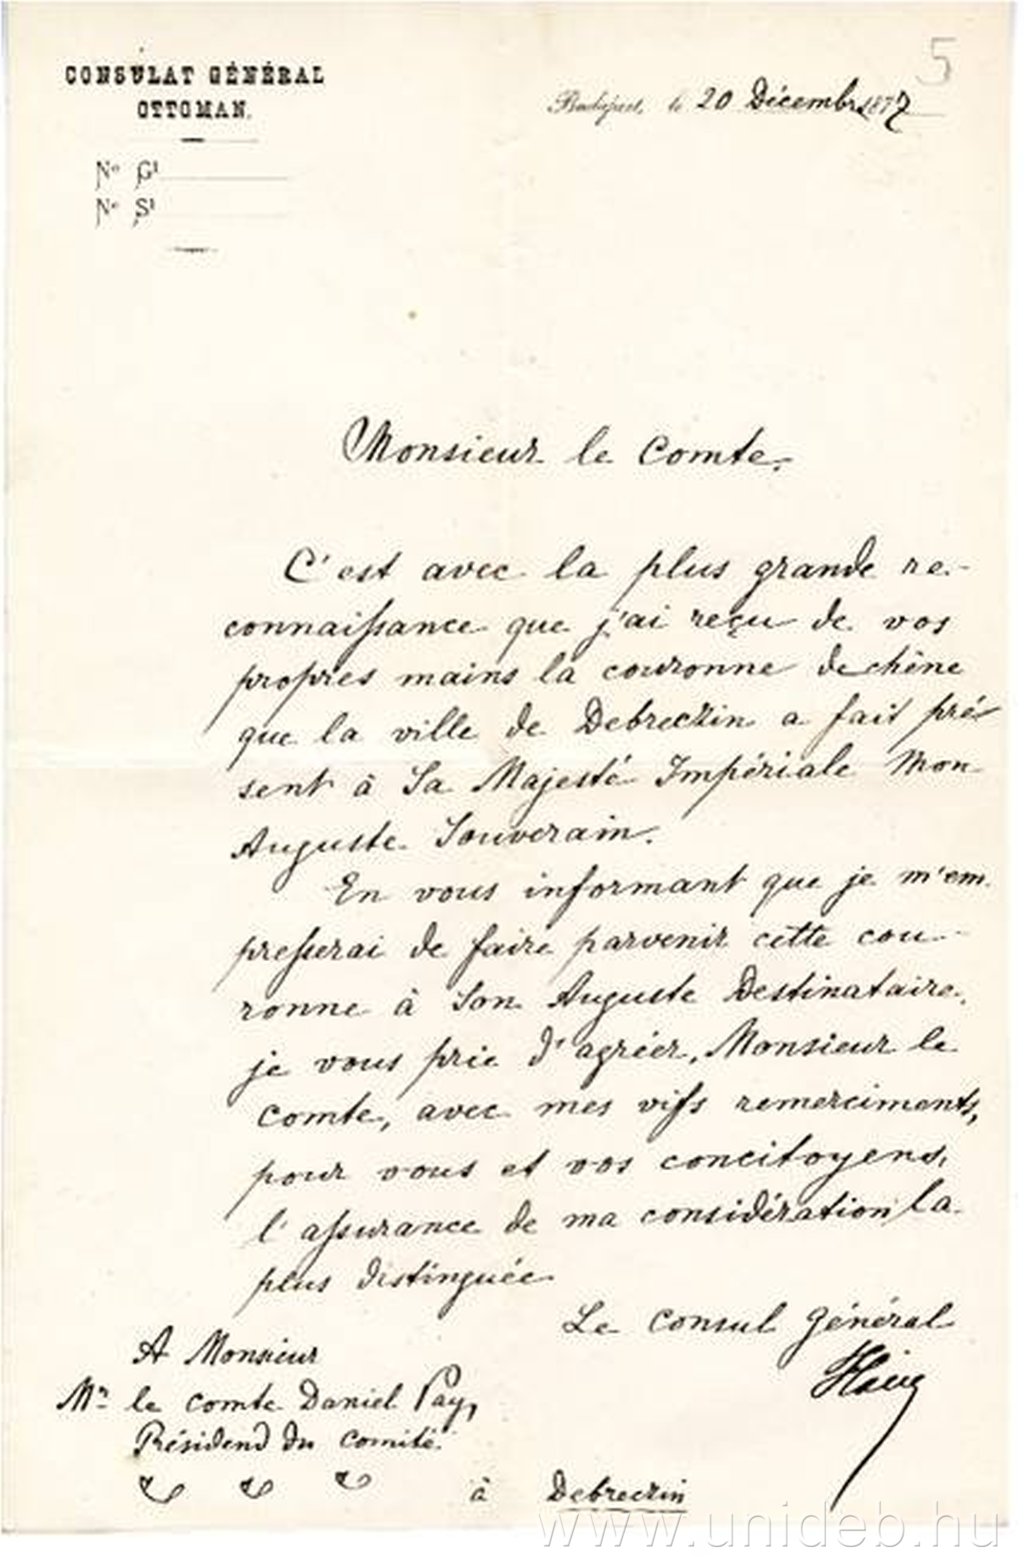 CONSULAT GÉNÉRAL
OTTOMAN.
5
Budapest, le 20 Décembre 1877
No Gl
No Sl
Monsieur le Comte.
C'est avec la plus grande re-
connaissance que j'ai reçu de vos
propres mains la couronne de chêne
que la ville de Debreczin a fait pré-
sent à Sa Majesté Impériale Mon
Auguste Souverain.
En vous informant que je m'em-
presserai de faire parvenir cette cou-
ronne à Son Auguste Destinataire,
je vous prie d'agréer, Monsieur le
comte, avec mes vifs remerciments,
pour vous et vos concitoyens,
l'assurance de ma considération la
plus distinguée
Le Consul Général
A Monsieur
Mr le comte Daniel Pay,
Présidend du Comité.
à Debreczin
www.unideb.hu